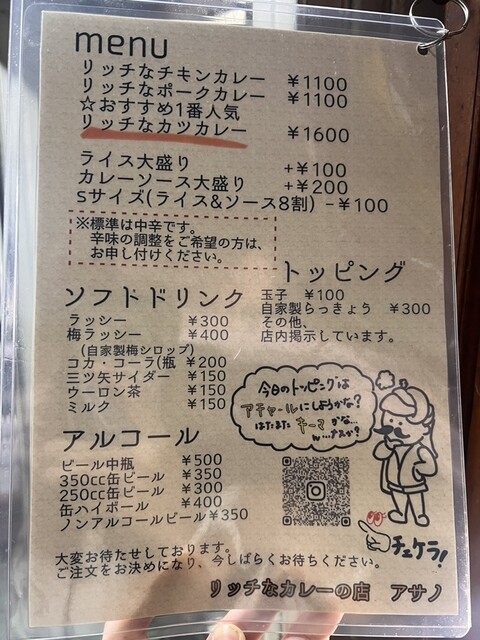 menu
リッチなチキンカレー ¥1100
リッチなポークカレー ¥1100
☆おすすめ1番人気
リッチなカツカレー ¥1600
ライス大盛り +¥100
カレーソース大盛り +¥200
sサイズ(ライス&ソース8割) -¥100
※標準は中辛です。
辛味の調整をご希望の方は、
お申し付けください。
トッピング
玉子 ¥100
自家製らっきょう ¥300
その他、
店内掲示しています。
ソフトドリンク
ラッシー ¥300
梅ラッシー ¥400
(自家製梅シロップ)
コカ・コーラ(瓶 ¥200
三ツ矢サイダー ¥150
ウーロン茶 ¥150
ミルク ¥150
今日のトッピングは
アチャールにしようかな?
はたまた キーマ かな...
アルコール
ビール中瓶 ¥500
350cc缶ビール ¥350
250cc缶ビール ¥300
缶ハイボール ¥400
ノンアルコールビール ¥350
チェケラ!
大変お待たせしております。
ご注文をお決めになり、今しばらくお待ちください。
リッチなカレーの店 アサノ